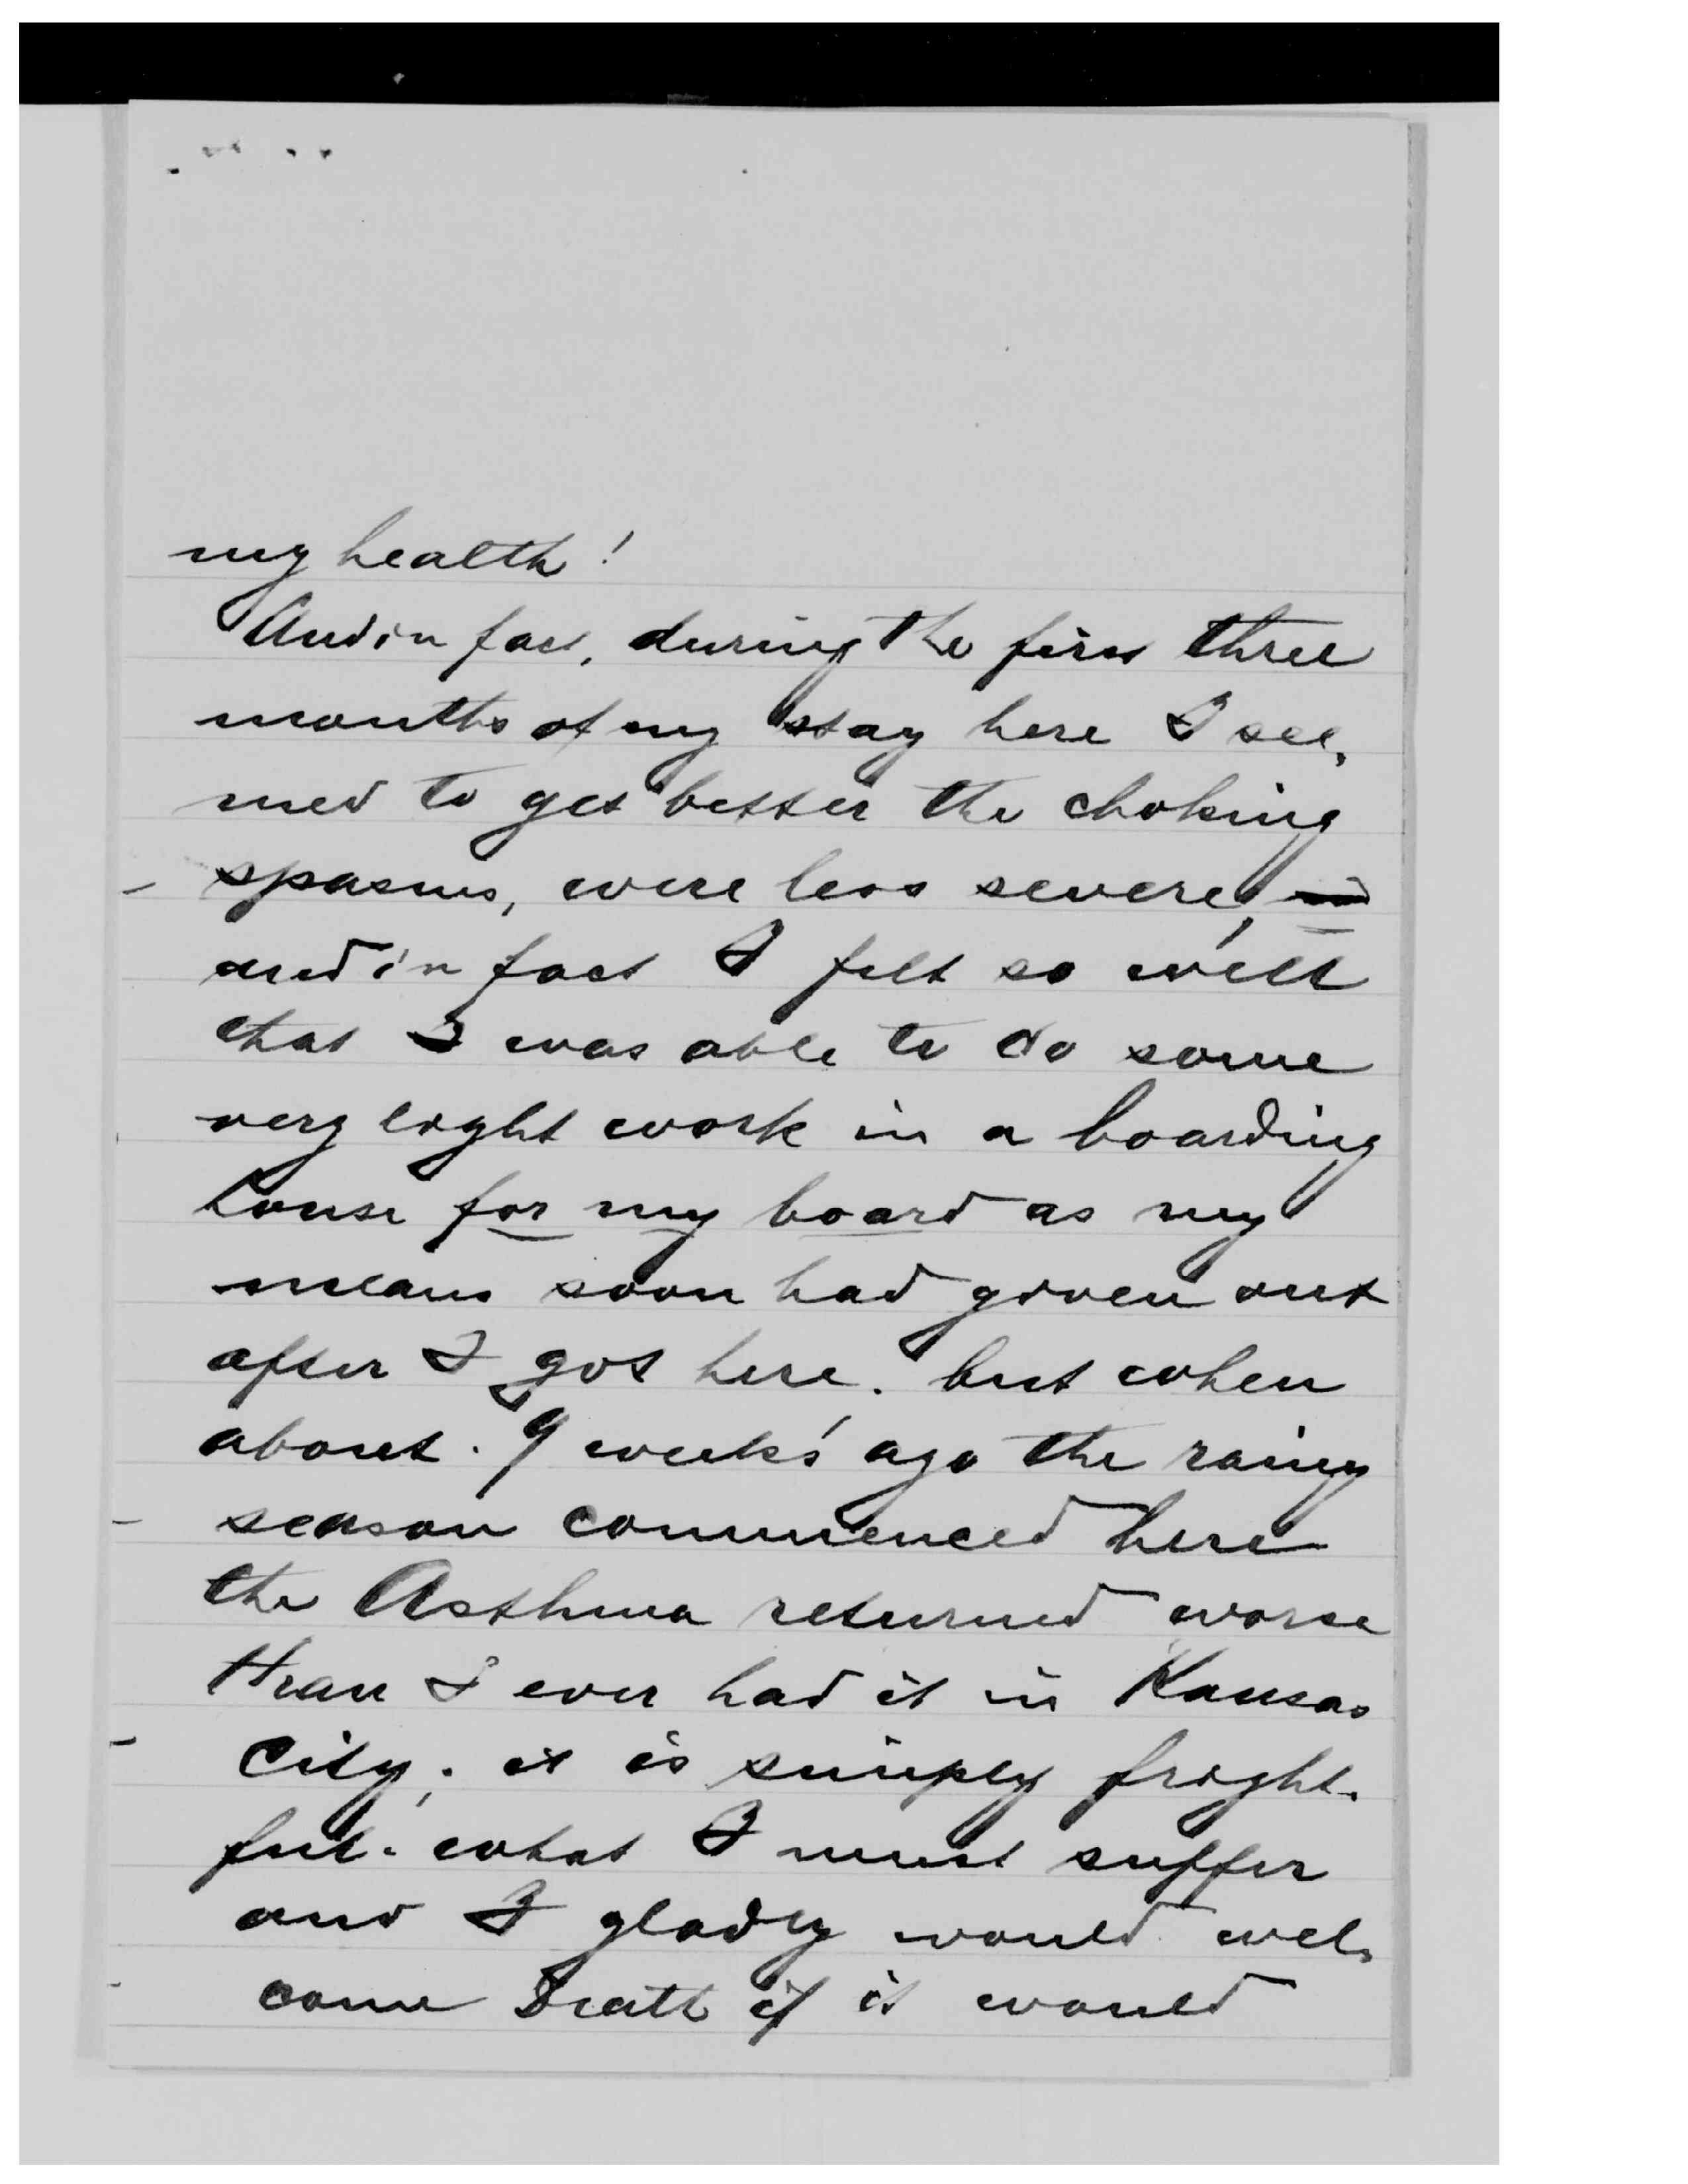 my health!
And in fact, during the first three
months of my stay here I see-
med to get better the choking
spasms, were less severe,
and in fact I felt so well
that I was able to do some
very light work in a boarding
house for my board as my
means soon had given out
after I got here. but when
about. 9 weeks' ago the rainy
season commenced here
the Asthma returned worse
than I ever had it in Kansas
City; it is simply fright-
ful. what I must suffer
and I gladly would wel-
come Death if it would